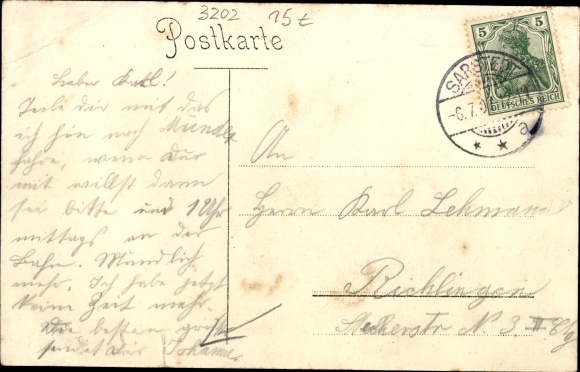 3202 15 t
Postkarte
5 5
DEUTSCHES REICH
SARSTEDT
-6.7.
a
Lieber Karl!
Teile dir mit das
ich hin nach Münder
fahre, wenn Du
mit willst dann
sei bitte und 1 Uhr
mittags an der
Bahn. Mündlich
mehr. Ich habe jetzt
keine Zeit mehr.
Die besten Grüße
sendet dir Johannes
An
Herrn Karl Lehmann
Richlingen
Stecherstr N. 3 II Etg